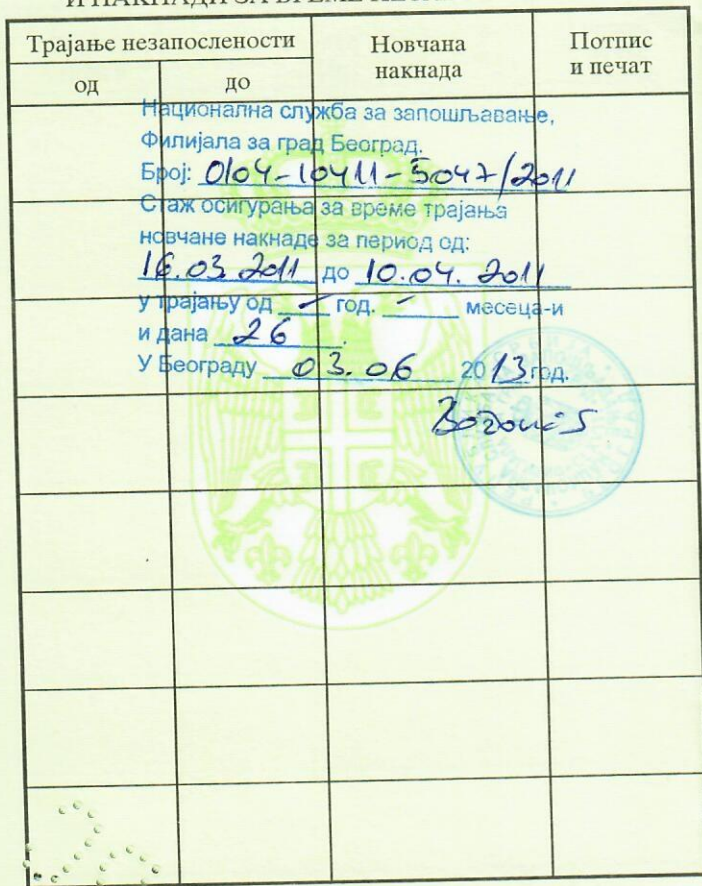 И НАКНАДИ ЗА ВРЕМЕ
Трајање незапослености
Новчана накнада
Потпис и печат
од
до
Национална служба за запошљавање,
Филијала за град Београд.
Број: 0104-10411-5047/2011
Стаж осигурања за време трајања
новчане накнаде за период од:
16.03.2011 до 10.04.2011
у трајању од - год. - месеца-и
и дана 26.
У Београду 03.06 2013 год.